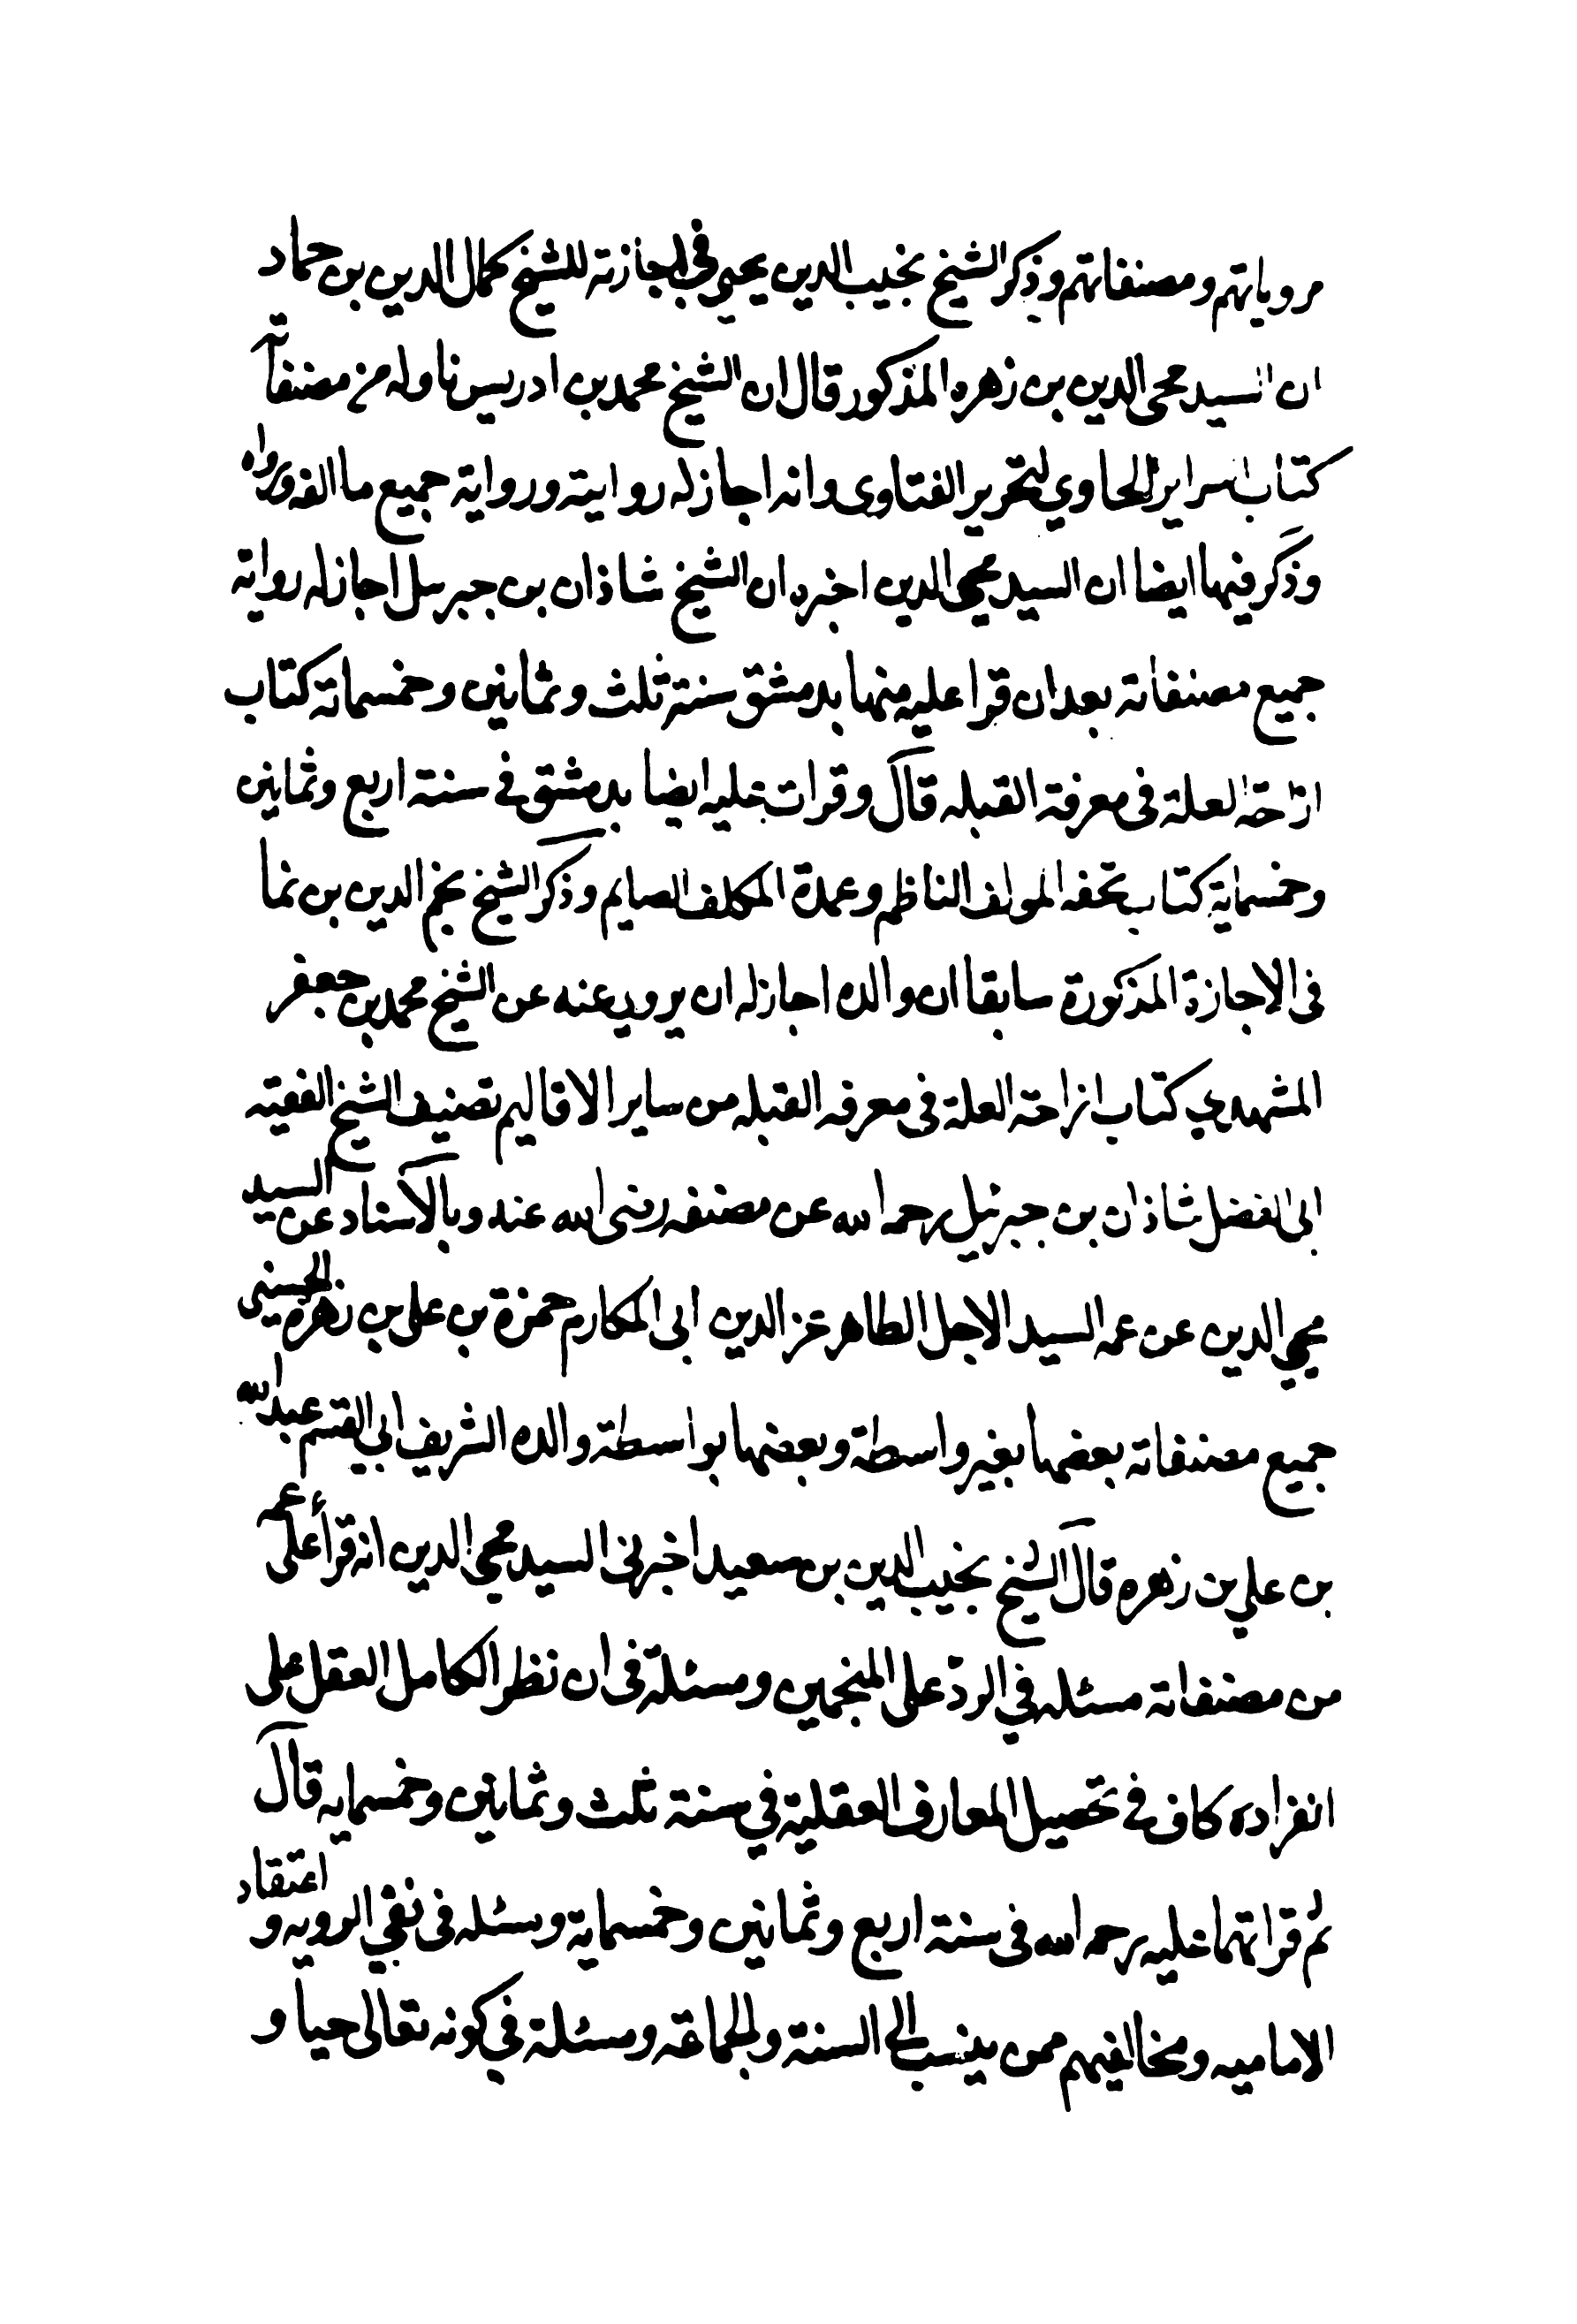 مروياتهم ومصنفاتهم وذكر الشيخ نجيب الدين يحيى في اجازته للشيخ كمال الدين بن حماد
ان السيد محي الدين بن زهره المذكور قال ان الشيخ محمد بن ادريس ناوله من مصنفاته
كتاب السراير الحاوي لتحرير الفتاوى وانه اجاز له روايته ورواية جميع ما الفه ورواه
وذكر فيها ايضا ان السيد محيي الدين اخبره ان الشيخ شاذان بن جبرئل اجاز له رواية
جميع مصنفاته بعد ان قرا عليه منها بدمشق سنة ثلث وثمانين وخمسمائة كتاب
ازاحة العلة في معرفة القبله قال وقرات عليه ايضا بدمشق في سنة اربع وثمانين
وخمسماية كتاب تحفه المولف الناظم وعمدة المكلف الصايم وذكر الشيخ نجم الدين بن نما
في الاجازة المذكورة سابقا ان والده اجاز له ان يروي عنه عن الشيخ محمد بن جعفر
المشهدي كتاب ازاحة العلة في معرفه القبله من ساير الاقاليم تصنيف الشيخ الفقيه
ابى الفضل شاذان بن جبرئيل رحمه الله عن مصنفه رضى الله عنه وبالاسناد عن السيد
محيي الدين عن عمه السيد الاجل الطاهر عز الدين ابى المكارم حمزة بن على بن زهرة الحسيني
جميع مصنفاته بعضها بغير واسطة وبعضها بواسطة والده الشريف ابي القسم عبدالله
بن علي بن زهره قال الشيخ نجيب الدين بن سعيد اخبرني السيد محيي الدين انه قرأ على عمه
من مصنفاته مسئله في الردّ على المنجمين ومسئلة في ان نظر الكامل العقل على
انفراده كاف في تحصيل المعارف العقلية في سنة ثلث وثمانين وخمسمايه قال
ثم قراتهما عليه رحمه الله في سنة اربع وثمانين وخمسماية ومسئله في نفي الرويه و اعتقاد
الاماميه ومخالفيهم ممن ينسب الى السنة والجماعه ومسئلة في كونه تعالى حيا و